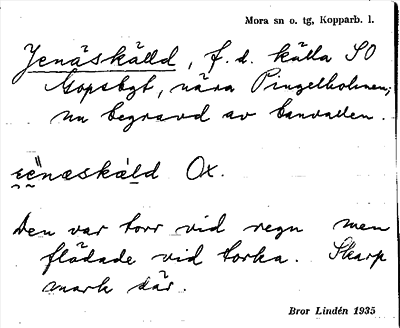 Mora sn o. tg, Kopparb. l.
Jenäskälld, f. d. källa SO
Gopsbyt, nära Pingelholmen;
nu begravd av banvallen.
Ox.
Den var torr vid regn men
flödade vid torka. Skarp
mark där.
Bror Lindén 1935